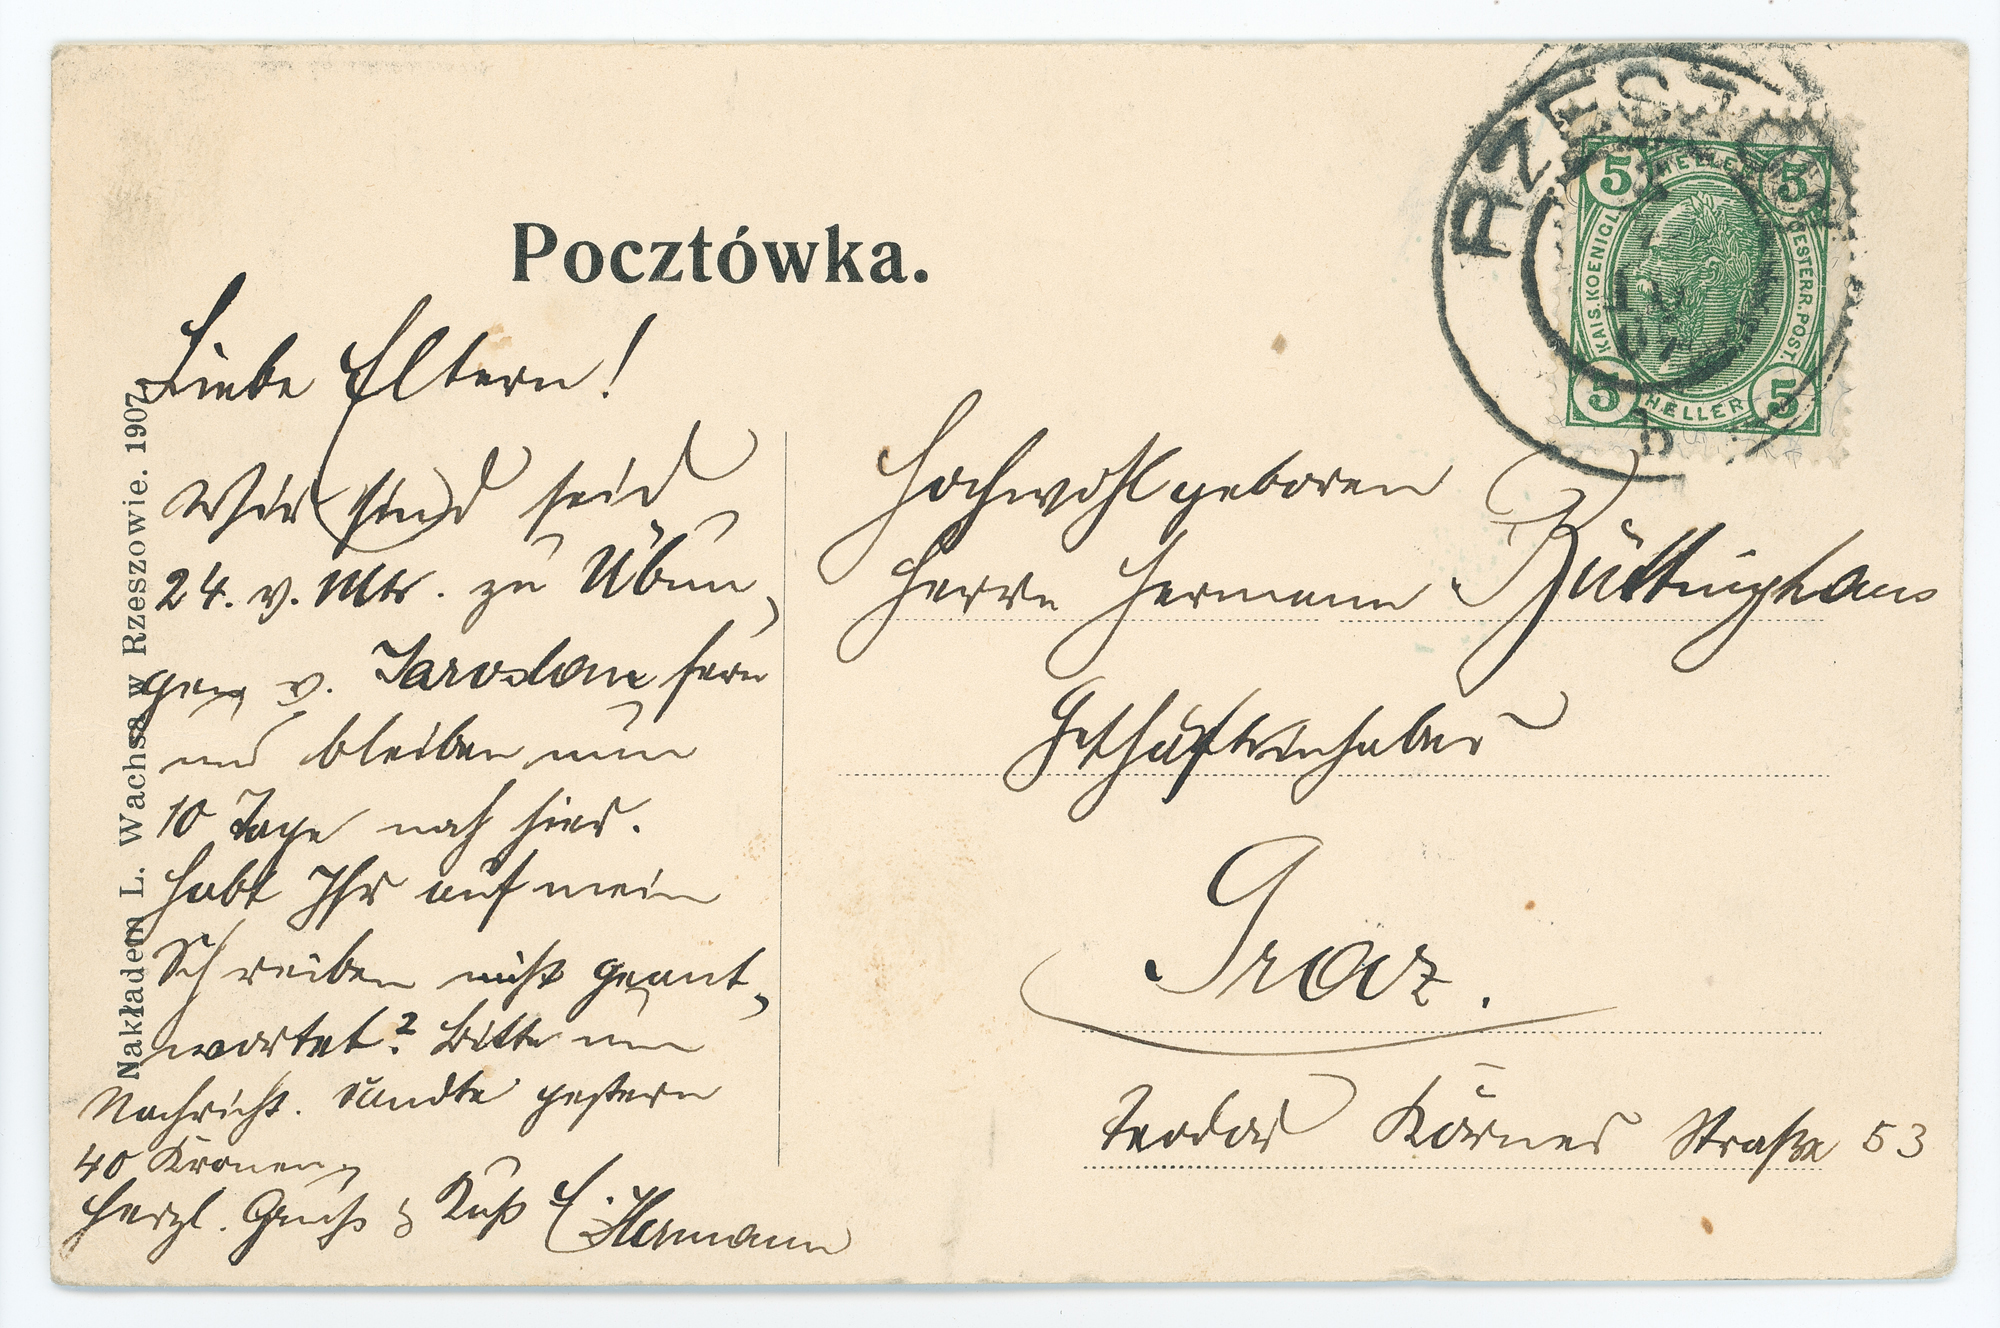 Pocztówka.
Nakładem L. Wachsa w Rzeszowie. 1907.
RZESZÓW
b
5 HELLER 5
KAIS. KOENIGL.
OESTERR. POST.
5 HELLER 5
Liebe Eltern!
Wir sind seid
24. v. Mts. zu Übun„
gen v. Jaroslau fern
und bleiben nun
10 Tage noch hier.
Habt Ihr auf mein
Schreiben nicht geant„
wortet? Bitte um
Nachricht. sandte gestern
40 Kronen
Herzl. Gruß & Kuß E. Hermann
Hochwohlgeboren
Herrn Hermann Büttinghaus
Geschäftsinhaber
Graz.
Teodor Körner Straße 53